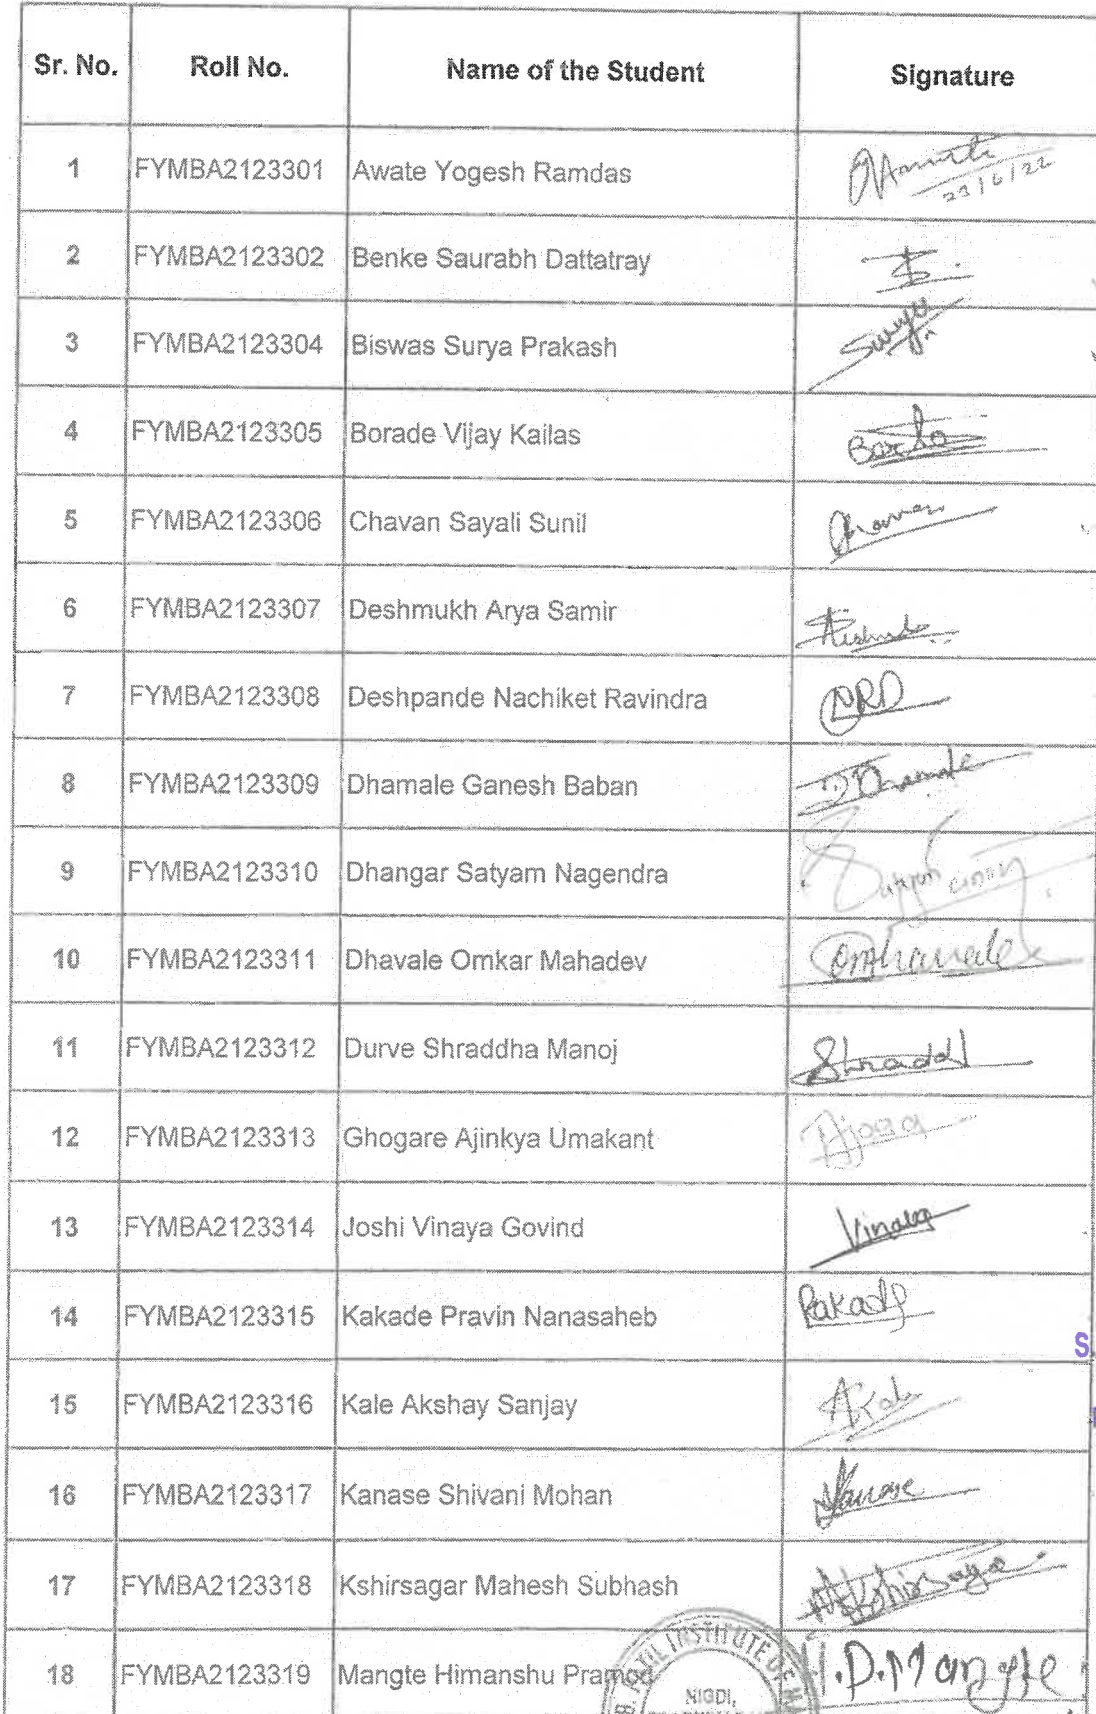 Sr. No. Roll No. Name of the Student Signature
1 FYMBA2123301 Awate Yogesh Ramdas
23/6/22
2 FYMBA2123302 Benke Saurabh Dattatray
3 FYMBA2123304 Biswas Surya Prakash Surya
4 FYMBA2123305 Borade Vijay Kailas
5 FYMBA2123306 Chavan Sayali Sunil
6 FYMBA2123307 Deshmukh Arya Samir
7 FYMBA2123308 Deshpande Nachiket Ravindra NRD
8 FYMBA2123309 Dhamale Ganesh Baban Dhamale
9 FYMBA2123310 Dhangar Satyam Nagendra
10 FYMBA2123311 Dhavale Omkar Mahadev
11 FYMBA2123312 Durve Shraddha Manoj
12 FYMBA2123313 Ghogare Ajinkya Umakant
13 FYMBA2123314 Joshi Vinaya Govind Vinaya
14 FYMBA2123315 Kakade Pravin Nanasaheb
S
15 FYMBA2123316 Kale Akshay Sanjay
16 FYMBA2123317 Kanase Shivani Mohan
17 FYMBA2123318 Kshirsagar Mahesh Subhash
18 FYMBA2123319 Mangte Himanshu Pramod
B. PATIL INSTITUTE OF
NIGDI,